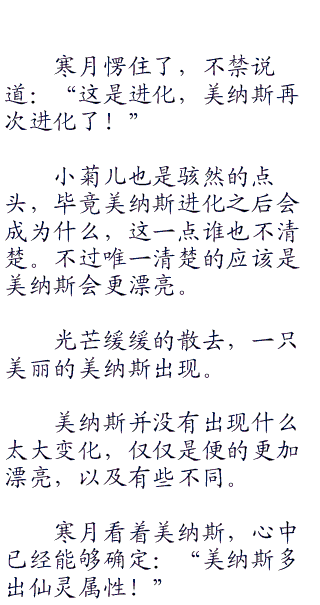 寒月愣住了，不禁说
道：“这是进化，美纳斯再
次进化了！”
小菊儿也是骇然的点
头，毕竟美纳斯进化之后会
成为什么，这一点谁也不清
楚。不过唯一清楚的应该是
美纳斯会更漂亮。
光芒缓缓的散去，一只
美丽的美纳斯出现。
美纳斯并没有出现什么
太大变化，仅仅是便的更加
漂亮，以及有些不同。
寒月看着美纳斯，心中
已经能够确定：“美纳斯多
出仙灵属性！”